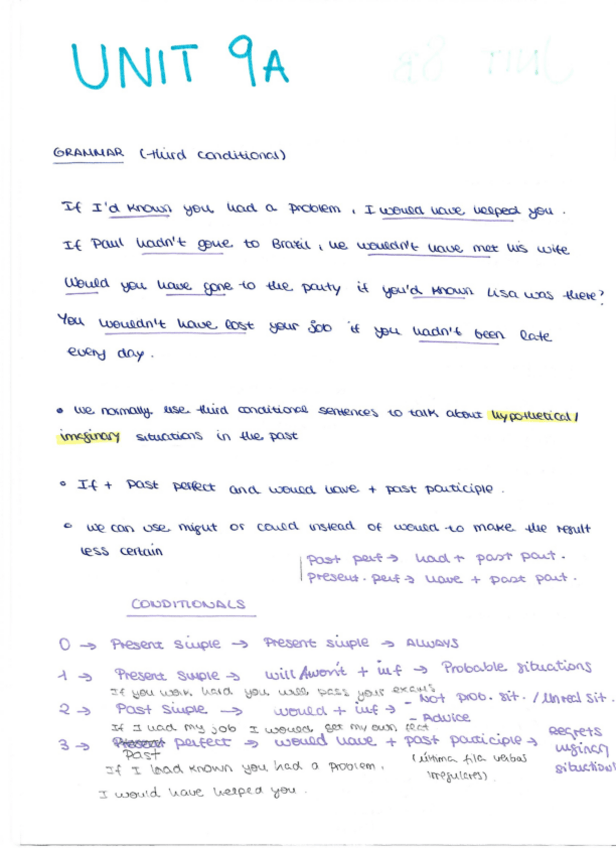 UNIT 9A
GRAMMAR (third conditional)
If I'd known you had a problem, I would have helped you.
If Paul hadn't gone to Brazil, he wouldn't have met his wife
Would you have gone to the party if you'd known Lisa was there?
You wouldn't have lost your job if you hadn't been late
every day.
• we normally use third conditional sentences to talk about hypothetical/
imaginary situations in the past
• If + past perfect and would have + past participle.
• we can use might or could instead of would to make the result
less certain
Past perf → had + past part.
present. perf → have + past part.
CONDITIONALS
0 → Present simple → Present simple → ALWAYS
1 → Present simple → will/won't + inf → Probable situations
If you work hard you will pass your exams
2 → Past simple → would + inf → - Not prob. sit. / Unreal sit.
- Advice
If I had my job I would get my own
3 → Present perfect → would have + past participle → regrets
Past
situation
If I had known you had a problem. (última fila verbos
irregulares)
I would have helped you.